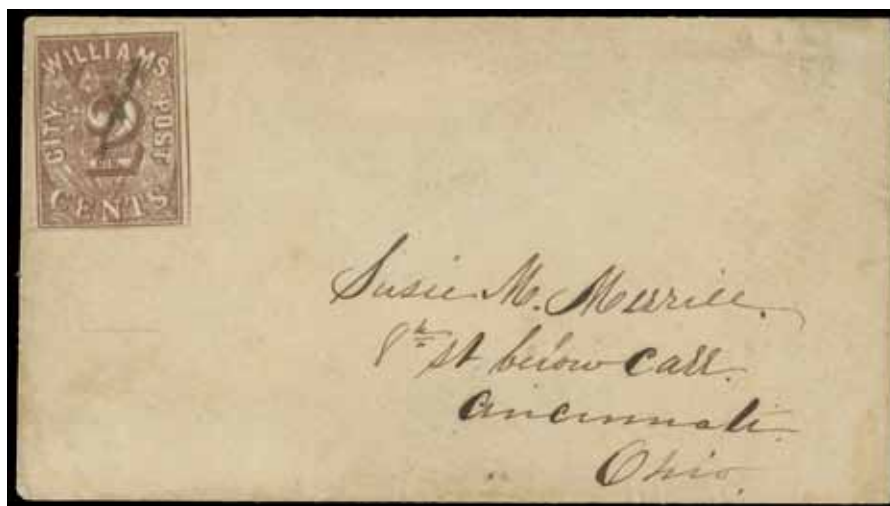 WILLIAMS
CITY POST
2
CENTS
Susie M. Merrill.
8th St below Carr.
Cincinnati
Ohio.